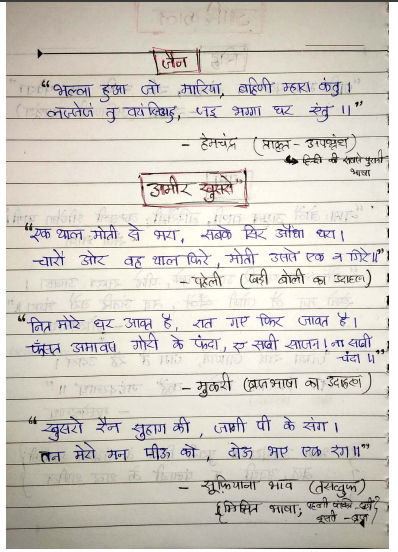 आदिकाल
जैन
"भल्ला हुआ जो मारिया, बहिणी म्हारा कंतु।
लज्जेजं तु वयंसिअहु, जइ भग्गा घर एंतु॥"
- हेमचंद्र (प्राकृत - अपभ्रंश)
↳ हिन्दी की सबसे पुरानी
भाषा
"अमीर खुसरो"
"एक थाल मोती से भरा, सबके सिर औंधा धरा।
चारों ओर वह थाल फिरे, मोती उससे एक न गिरे॥"
- पहेली (खड़ी बोली का उदाहरण)
"नित मोरे घर आवत है, रात गए फिर जावत है।
फंसत अमावस गोरी के फंदा, ए सखी साजन। ना सखी
चंदा॥"
- मुकरी (ब्रजभाषा का उदाहरण)
"खुसरो रैन सुहाग की, जागी पी के संग।
तन मेरो मन पीऊ को, दोऊ भए एक रंग॥"
- सूफियाना भाव (तसव्वुफ)
{मिश्रित भाषा; पहली पंक्ति - खड़ी;
दूसरी - ब्रज}